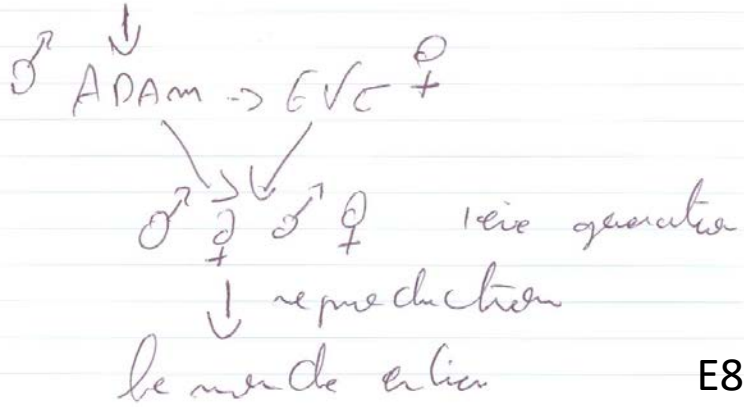 ♂ ADAM -> EVE ♀
♂ ♀ ♂ ♀ 1ère génération
reproduction
le monde entier
E8